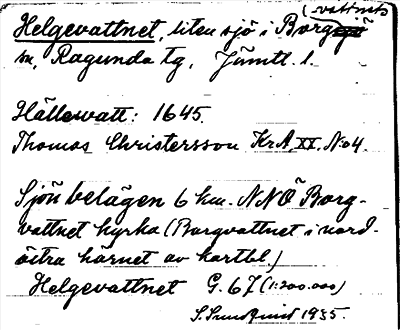 Helgevattnet, liten sjö i Borgvattnets
sn, Ragunda tg, Jämtl. l.
Hällewatt: 1645.
Thomas Christersson KrA, XX. No 4.
Sjön belägen 6 km. NNÖ Borg-
vattnet kyrka (Borgvattnet i nord-
östra hörnet av kartbl.)
Helgevattnet G. 67 (1:200.000)
1935.